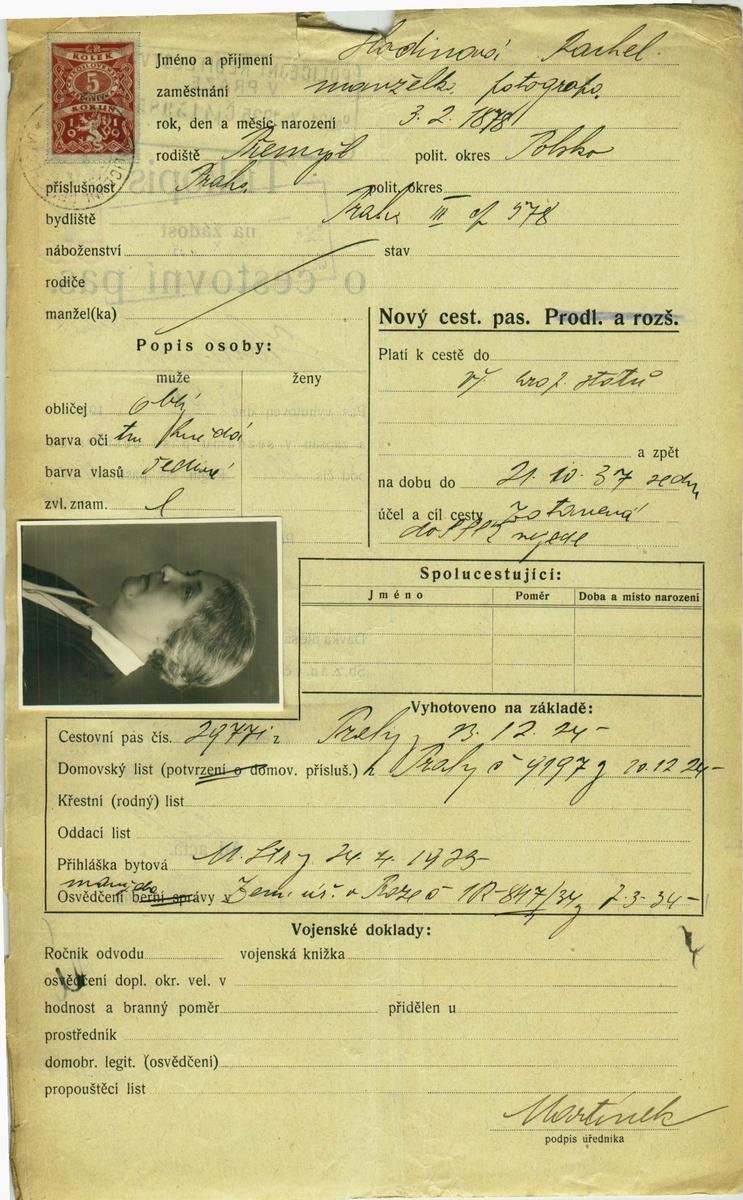 KOLEK
5
KORUN
1919
Jméno a příjmení Hodinová Rachel.
zaměstnání manželka fotografa.
rok, den a měsíc narození 3. 2. 1878
rodiště Přemyšl polit. okres Polsko
příslušnost Praha polit. okres
bydliště Praha III čp 578
náboženství stav
rodiče
manžel(ka)
Nový cest. pas. Prodl. a rozš.
Popis osoby:
muže ženy
obličej oblý
barva očí tm hnědá
barva vlasů šedivé
zvl. znam.
Platí k cestě do
vš. evrop. států
a zpět
na dobu do 21. 10. 37
účel a cíl cesty
nejede
Spolucestující:
Jméno Poměr Doba a místo narození
Vyhotoveno na základě:
Cestovní pas čís. 12. 24
Domovský list (potvrzení o domov. přísluš.) Prahy č 9197 10. 12 24
Křestní (rodný) list
Oddací list
Přihláška bytová M. Str 24. 4. 1925
manžela
Osvědčení berní správy v Zem. úř. v Praze č 7. 3. 34
Vojenské doklady:
Ročník odvodu vojenská knížka
osvědčení dopl. okr. vel. v
hodnost a branný poměr přidělen u
prostředník
domobr. legit. (osvědčení)
propouštěcí list
Martínek
podpis úředníka